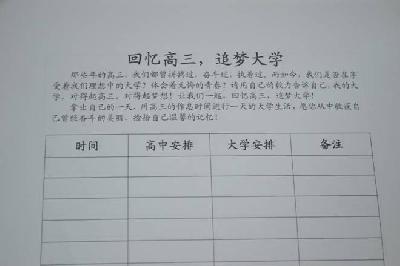 回忆高三，追梦大学
那些年的高三，我们都曾拼搏过，奋斗过，执着过，而如今，我们是否在享
受着我们理想中的大学？体会着无悔的青春？请用自己的致力告诉自己，我的大
学，对得起高三，对得起梦想！让我们一起，回忆高三，追梦大学！
拿出自己的一天，用高三的作息时间进行一天的大学生活，愿你从中收获自
己曾经奋斗的美丽，捡拾自己温馨的记忆！
时间 高中安排 大学安排 备注